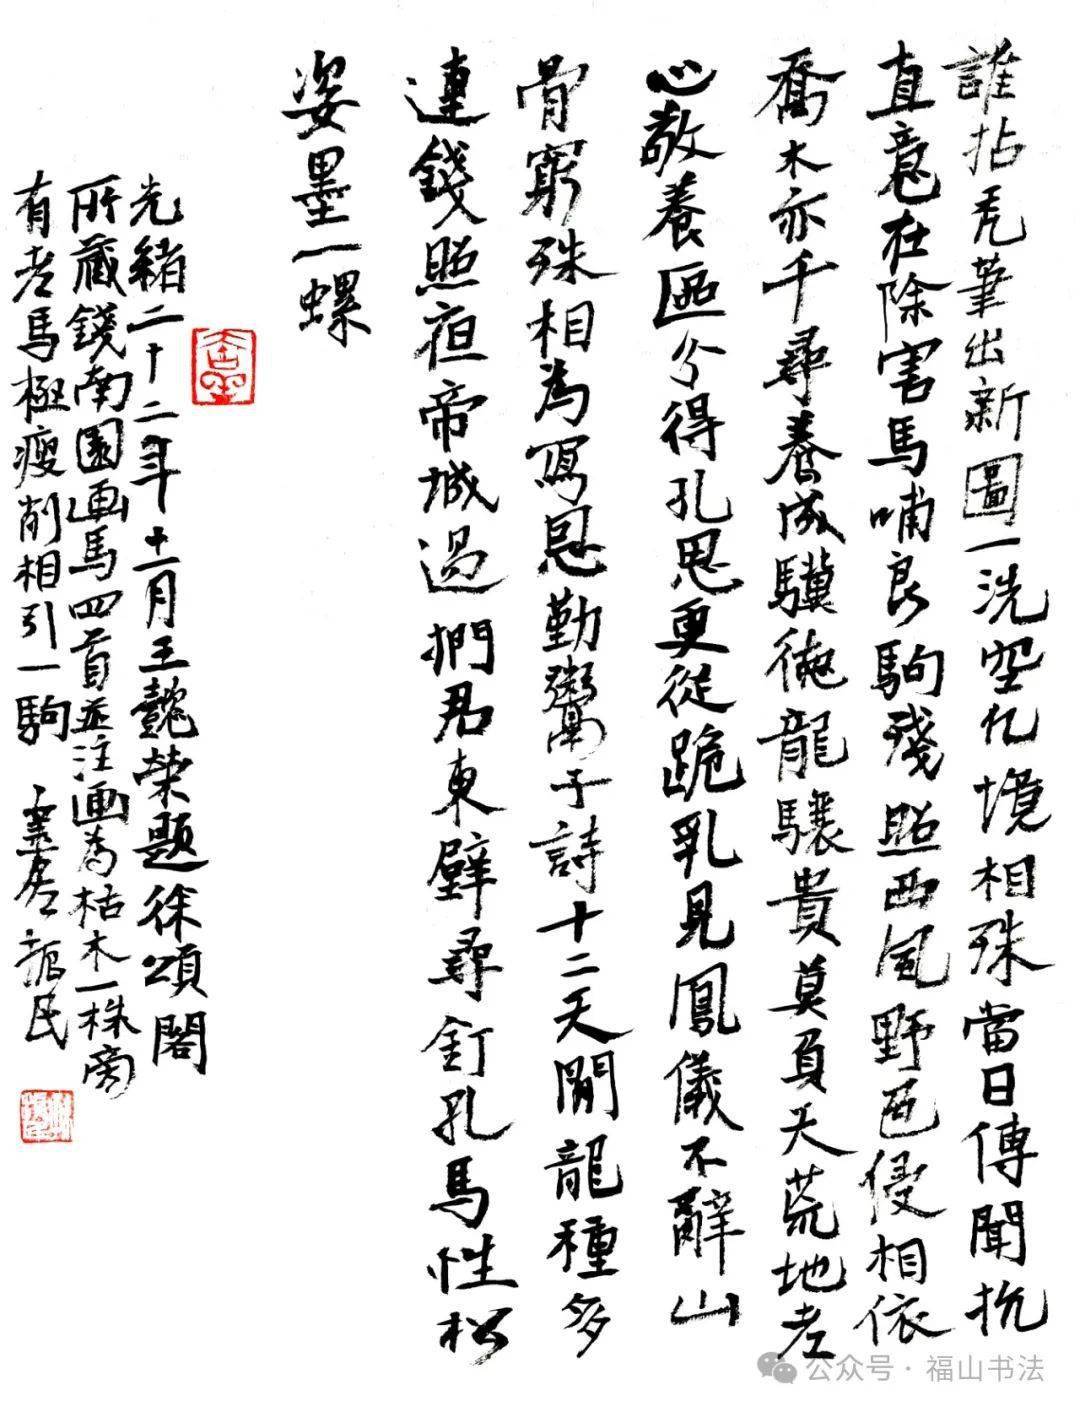 誰拈禿筆出新圖一洗空凡境相殊當日傳聞抗
直意在除害馬哺良駒殘照西風野色侵相依
喬木亦千尋養成驥德龍驤貴莫負天荒地老
心敬養區分得孔思更從跪乳見鳳儀不辭山
骨窮殊相為寫恩勤鬻子詩十二天閑龍種多
連錢照夜帝城過捫君東壁尋釘孔馬性松
姿墨一螺
光緒二十二年十一月王懿榮題徐頌閣
所藏錢南園画馬四首並注画為枯木一株旁
有老馬極瘦削相引一駒
公众号·福山书法